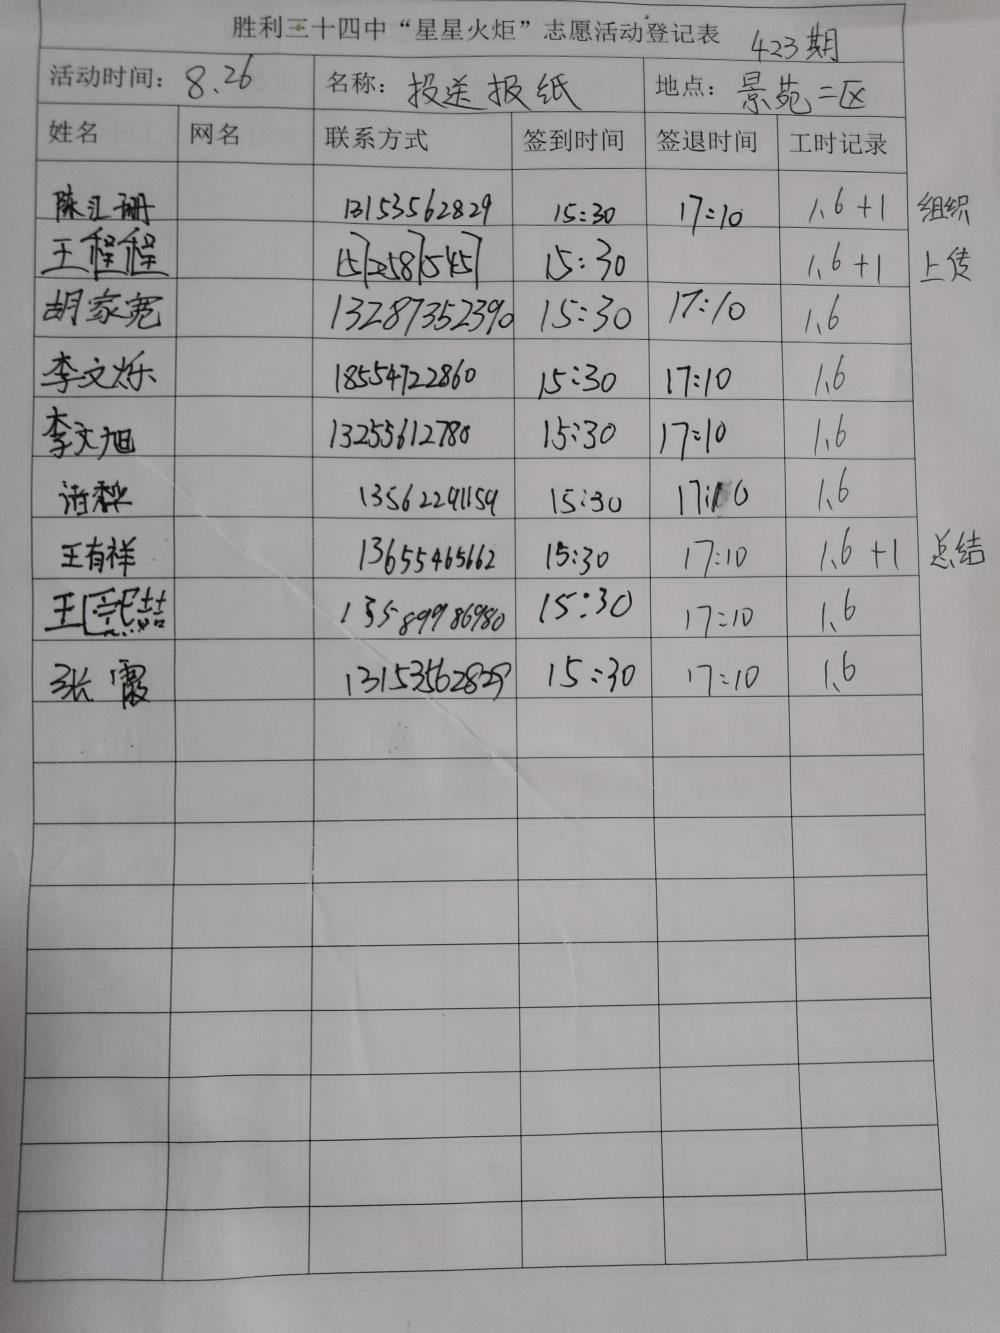 胜利三十四中“星星火炬”志愿活动登记表 423期
活动时间: 8.26 名称: 投送报纸 地点: 景苑二区
姓名 网名 联系方式 签到时间 签退时间 工时记录
陈汇珊 13153562829 15:30 17:10 1.6+1 组织
王程程 15725815457 15:30 1.6+1 上传
胡家宽 13287352390 15:30 17:10 1.6
李文烁 18554722860 15:30 17:10 1.6
李文旭 13255612780 15:30 17:10 1.6
13562291159 15:30 17:10 1.6
王有祥 13655465662 15:30 17:10 1.6+1 总结
王 13589986980 15:30 17:10 1.6
张霞 13153562829 15:30 17:10 1.6